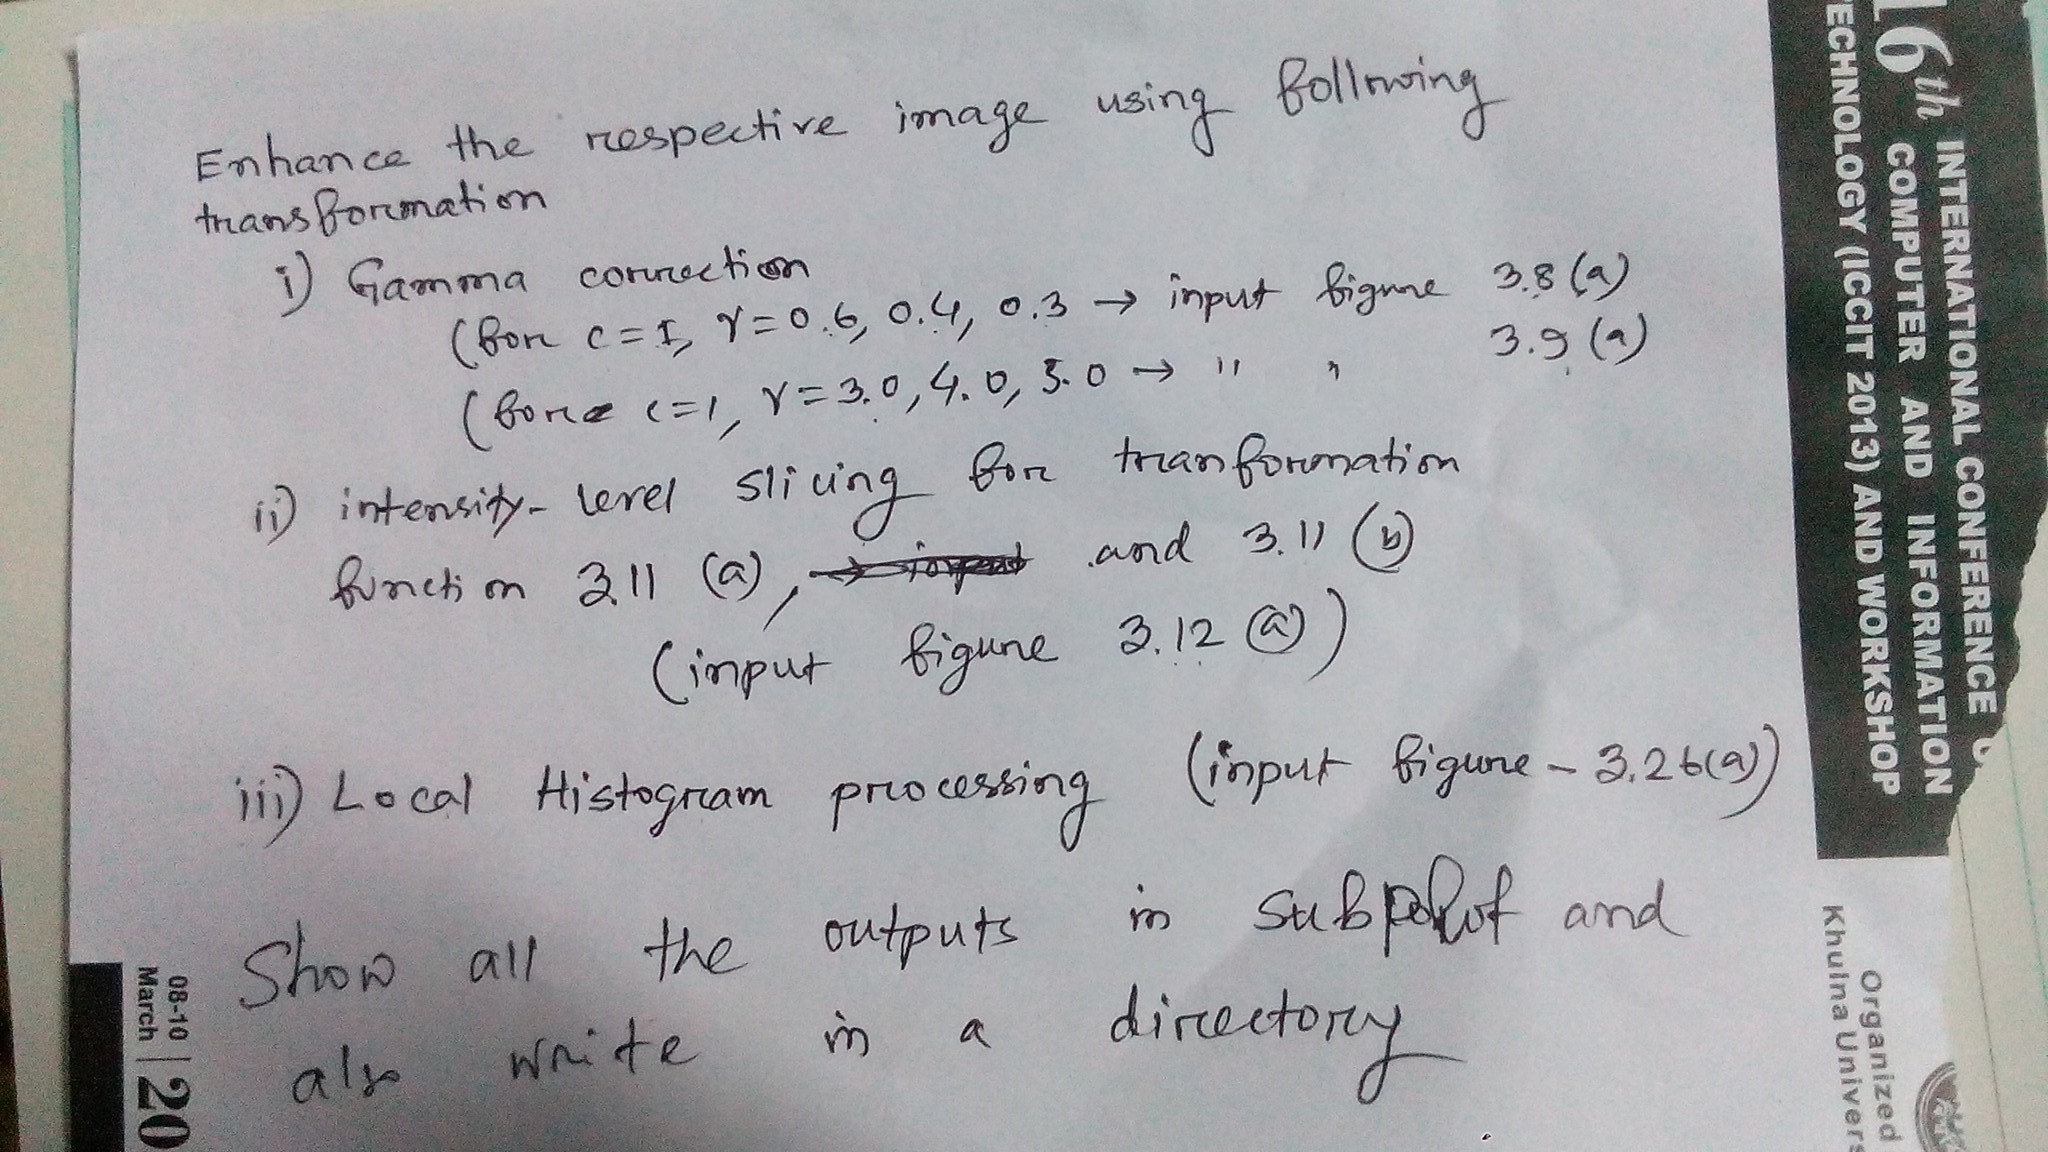 Enhance the respective image using following
transformation
i) Gamma correction
(for c=1, γ=0.6, 0.4, 0.3 → input figure 3.8 (a)
(for c=1, γ=3.0, 4.0, 5.0 → " " 3.9 (a)
ii) intensity-level slicing for tranformation
function 3.11 (a), and 3.11 (b)
(input figure 3.12 (a))
iii) Local Histogram processing (input figure - 3.26(a))
Show all the outputs in subplot and
also write in a directory
16th INTERNATIONAL CONFERENCE
COMPUTER AND INFORMATION
TECHNOLOGY (ICCIT 2013) AND WORKSHOP
Organized
Khulna Univers
08-10
March
20